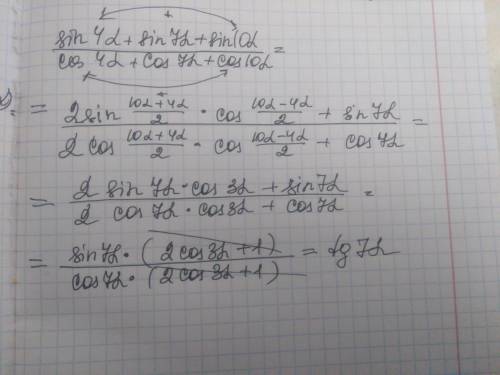 (sin 4α + sin 7α + sin 10α) / (cos 4α + cos 7α + cos 10α) =
= (2 sin (10α + 4α)/2 · cos (10α - 4α)/2 + sin 7α) / (2 cos (10α + 4α)/2 · cos (10α - 4α)/2 + cos 7α) =
= (2 sin 7α · cos 3α + sin 7α) / (2 cos 7α · cos 3α + cos 7α) =
= (sin 7α · (2 cos 3α + 1)) / (cos 7α · (2 cos 3α + 1)) = tg 7α